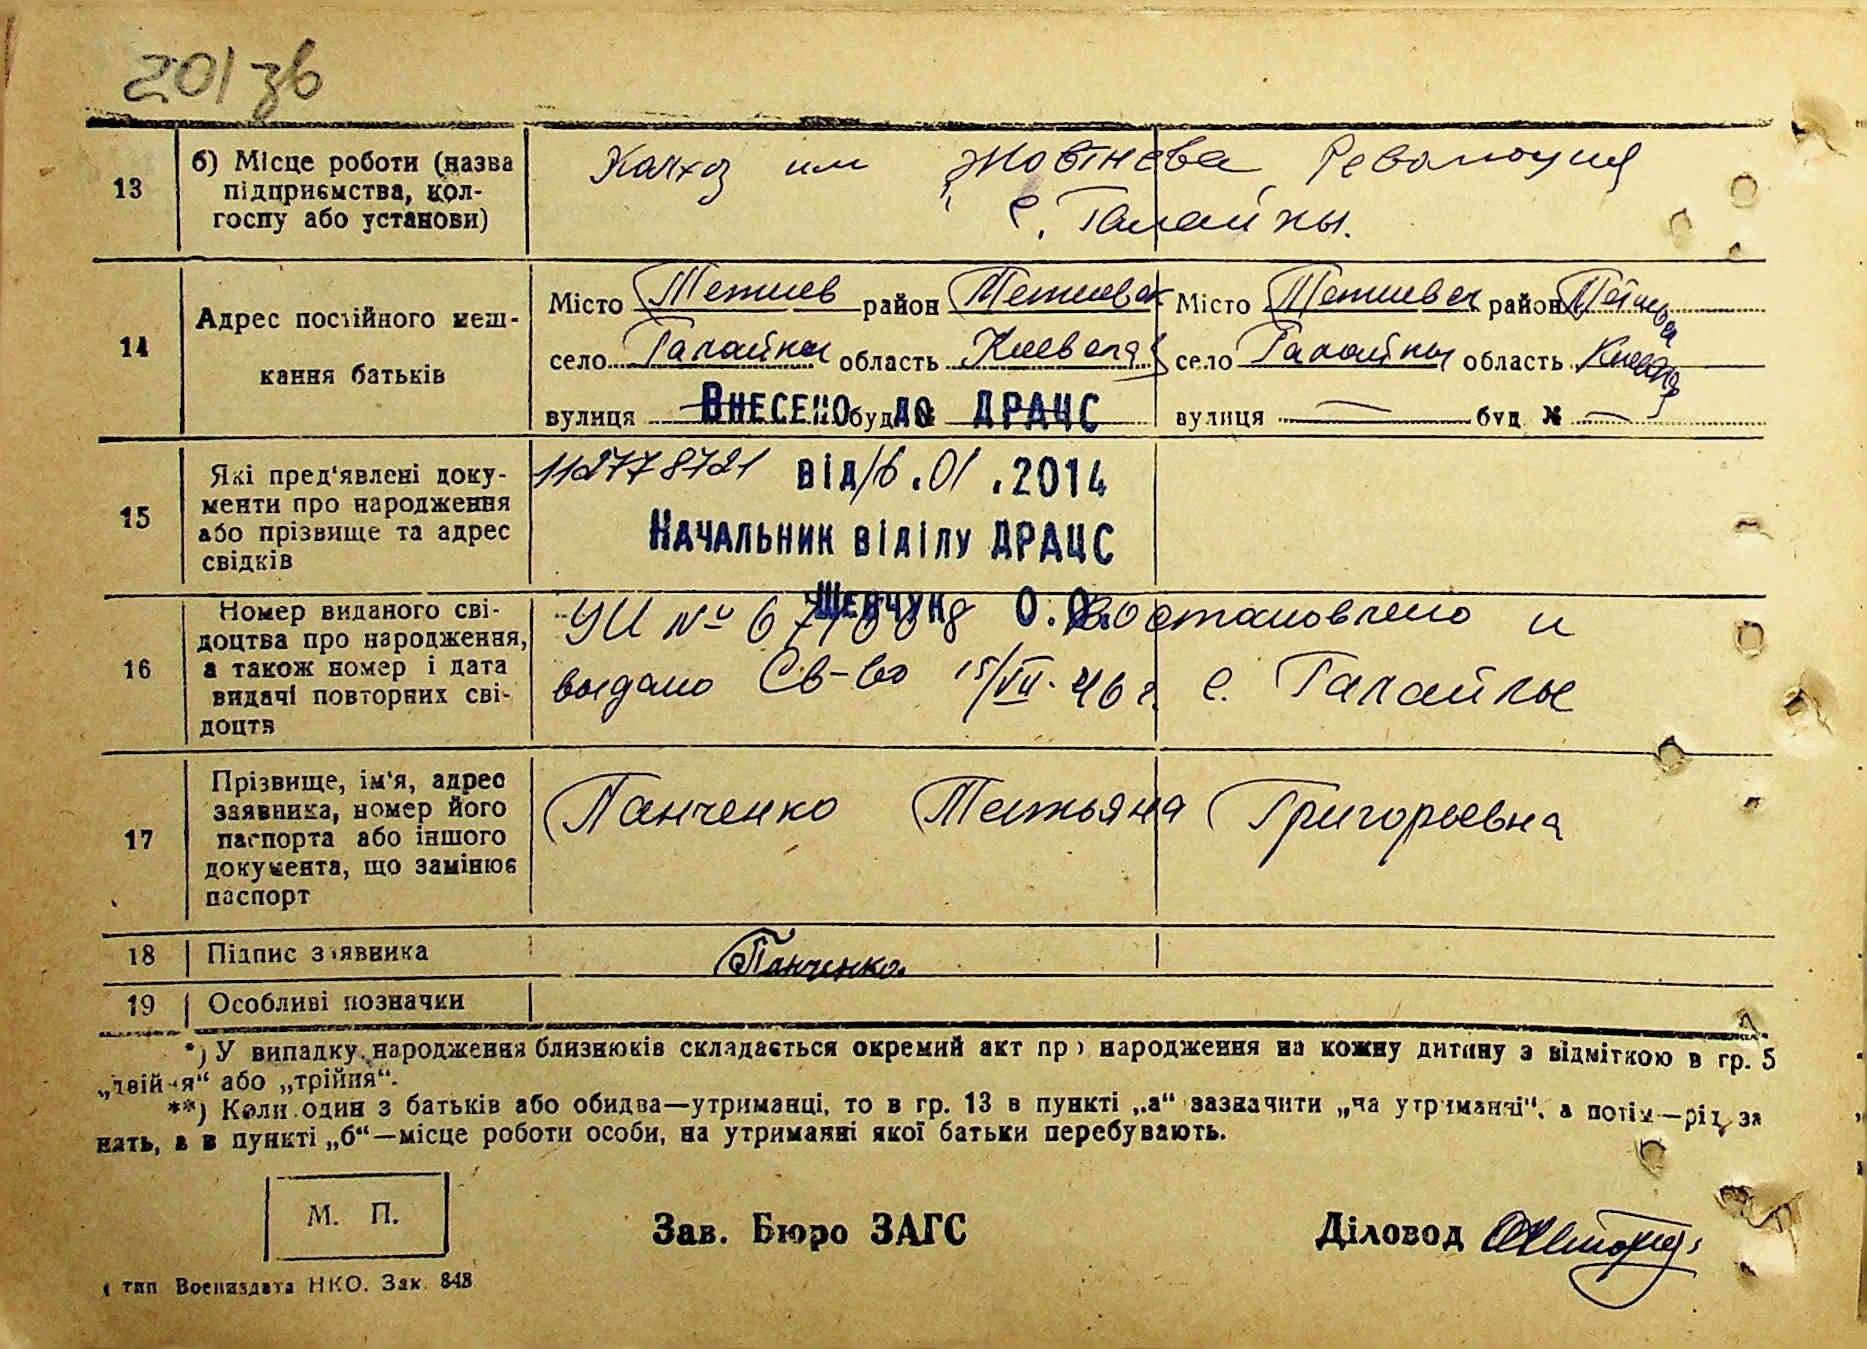 201 зв
13
б) Місце роботи (назва підприємства, колгоспу або установи)
Колхоз им Жовтнева Революция
с. Галайкы.
14
Адрес постійного мешкання батьків
Місто Тетиев район Тетиевск
село Галайкы область Киевская
вулиця — буд. №
Місто Тетиевск район
село Галайкы область Киевская
вулиця — буд № —
Внесено до ДРАЦС
15
Які пред'явлені документи про народження або прізвище та адрес свідків
112778721 від 16.01.2014
Начальник відділу ДРАЦС
Шевчук О.О.
16
Номер виданого свідоцтва про народження, а також номер і дата видачі повторних свідоцтв
УИ № 671008 Востановлено и
выдано Св-во 15/VII-46 г. с. Галайкы
17
Прізвище, ім'я, адрес заявника, номер його паспорта або іншого документа, що замінює паспорт
Панченко Татьяна Григорьевна
18
Підпис заявника
Панченко
19
Особливі позначки
*) У випадку народження близнюків складається окремий акт про народження на кожну дитину з відміткою в гр. 5
„двійня“ або „трійня“.
**) Коли один з батьків або обидва—утриманці, то в гр. 13 в пункті „а“ зазначити „на утриманні“, а потім—рід за
нять, а в пункті „б“—місце роботи особи, на утриманні якої батьки перебувають.
М. П.
Зав. Бюро ЗАГС
Діловод
тип Воениздата НКО. Зак. 848